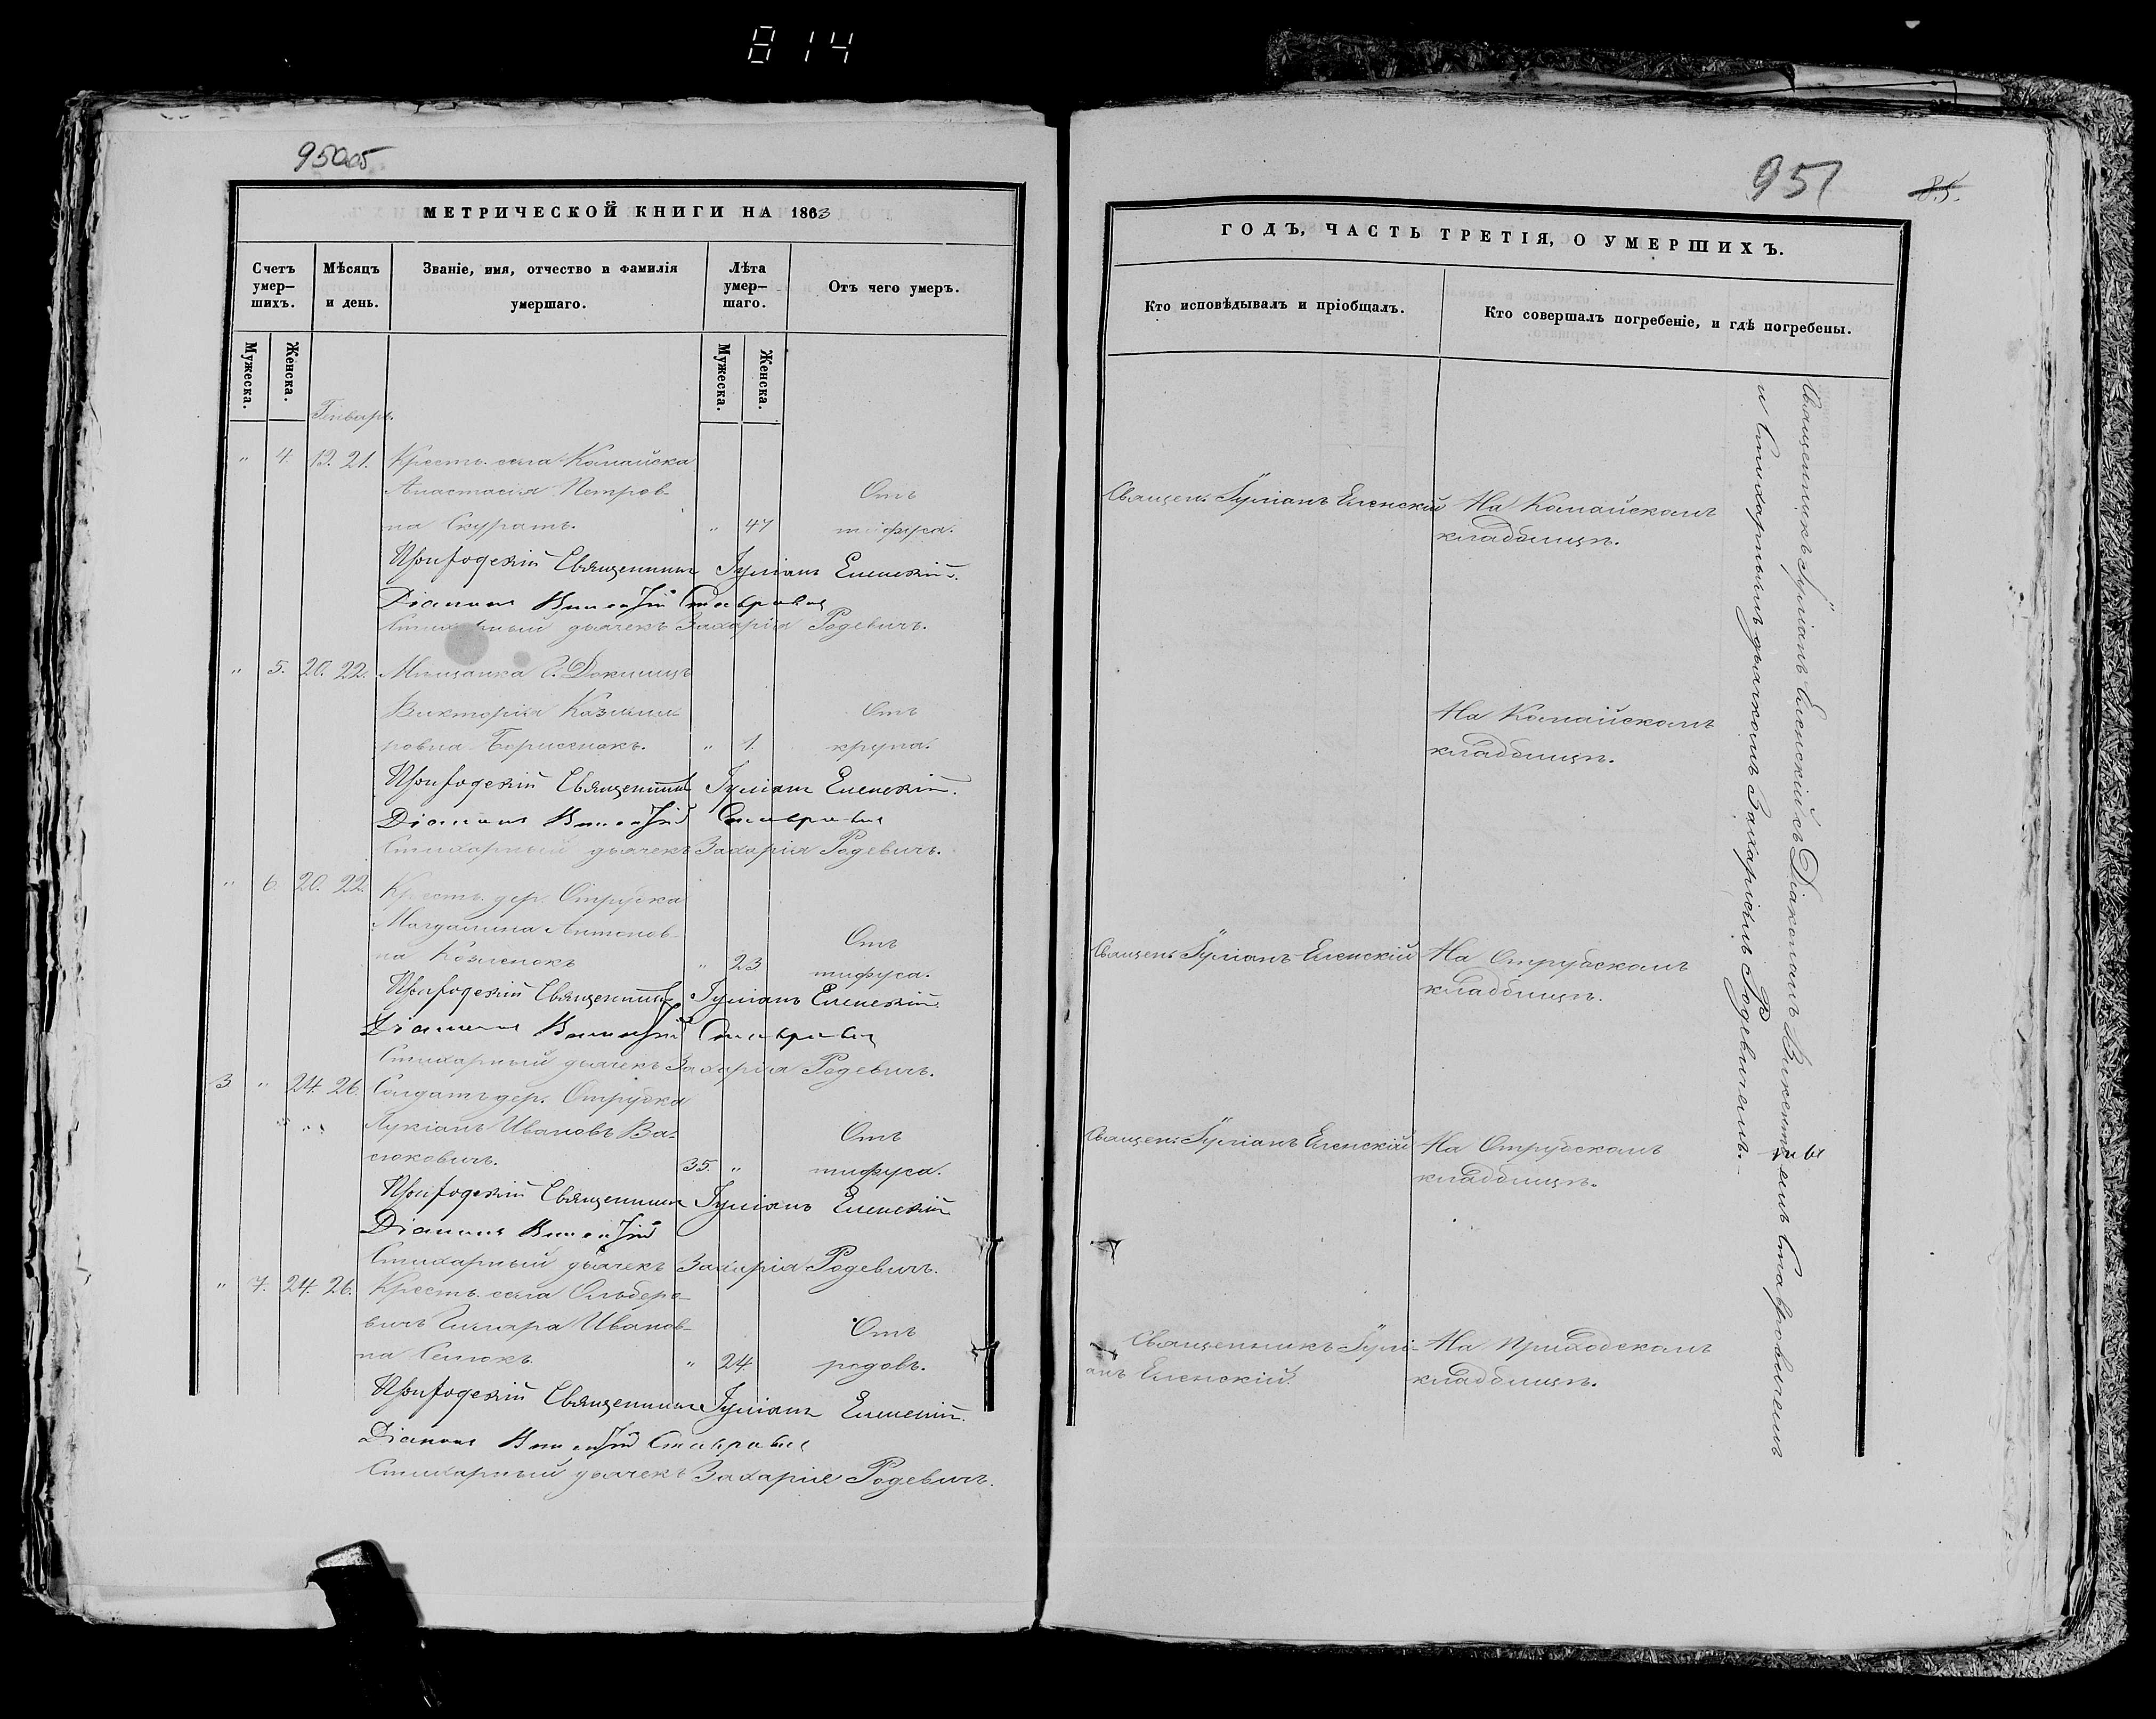 814
950об
МЕТРИЧЕСКОЙ КНИГИ НА 1863
Счетъ умер–шихъ.
Мѣсяцъ и день.
Званіе, имя, отчество и фамилія умершаго.
Лѣта умер–шаго.
Отъ чего умеръ.
Мужеска.
Женска.
Мужеска.
Женска.
Генварь.
" 4. 19. 21. Крестъ. села Камайска
Анастасія Петров- Отъ
на Скуратъ. " 47 тифуса.
Приходскій Священникъ Іуліанъ Еленскій.
Діаконъ Викентій Ставровичъ
Стихарный дьячекъ Захарія Родевичъ.
" 5. 20. 22. Мѣщанка г. Докшицъ
Викторія Казими- Отъ
ровна Борисенокъ. " 1. крупа.
Приходскій Священникъ Іуліанъ Еленскій.
Діаконъ Викентій Ставровичъ
Стихарный дьячекъ Захарія Родевичъ.
" 6. 20. 22. Крестъ. дер. Отрубка
Магдалина Антонов- Отъ
на Козленокъ " 23 тифуса.
Приходскій Священникъ Іуліанъ Еленскій.
Діаконъ Викентій Ставровичъ
Стихарный дьячекъ Захарія Родевичъ.
3 " 24. 26. Солдатъ дер. Отрубка
Лукіанъ Ивановъ Ва- Отъ
сюковичъ. 35. " тифуса.
Приходскій Священникъ Іуліанъ Еленскій
Діаконъ Викентій
Стихарный дьячекъ Захарія Родевичъ.
" 7. 24. 26. Крестъ. села
Иванов- Отъ
на " 24 родовъ.
Приходскій Священникъ Іуліанъ Еленскій.
Діаконъ Викентій Ставровичъ
Стихарный дьячекъ Захарія Родевичъ.
951
85.
ГОДЪ, ЧАСТЬ ТРЕТІЯ, О УМЕРШИХЪ.
Кто исповѣдывалъ и пріобщалъ.
Кто совершалъ погребеніе, и гдѣ погребены.
Священ. Іуліанъ Еленскій На Камайскомъ
кладбищѣ.
На Камайскомъ
кладбищѣ.
Священ. Іуліанъ Еленскій На Отрубскомъ
кладбищѣ.
Священ. Іуліанъ Еленскій На Отрубскомъ
кладбищѣ.
Священникъ Іулі- На приходскомъ
анъ Еленскій. кладбищѣ.
Священникъ Іуліанъ Еленскій съ Діакономъ Викентіемъ Ставровичемъ
и Стихарнымъ дьячкомъ Захаріемъ Родевичемъ.